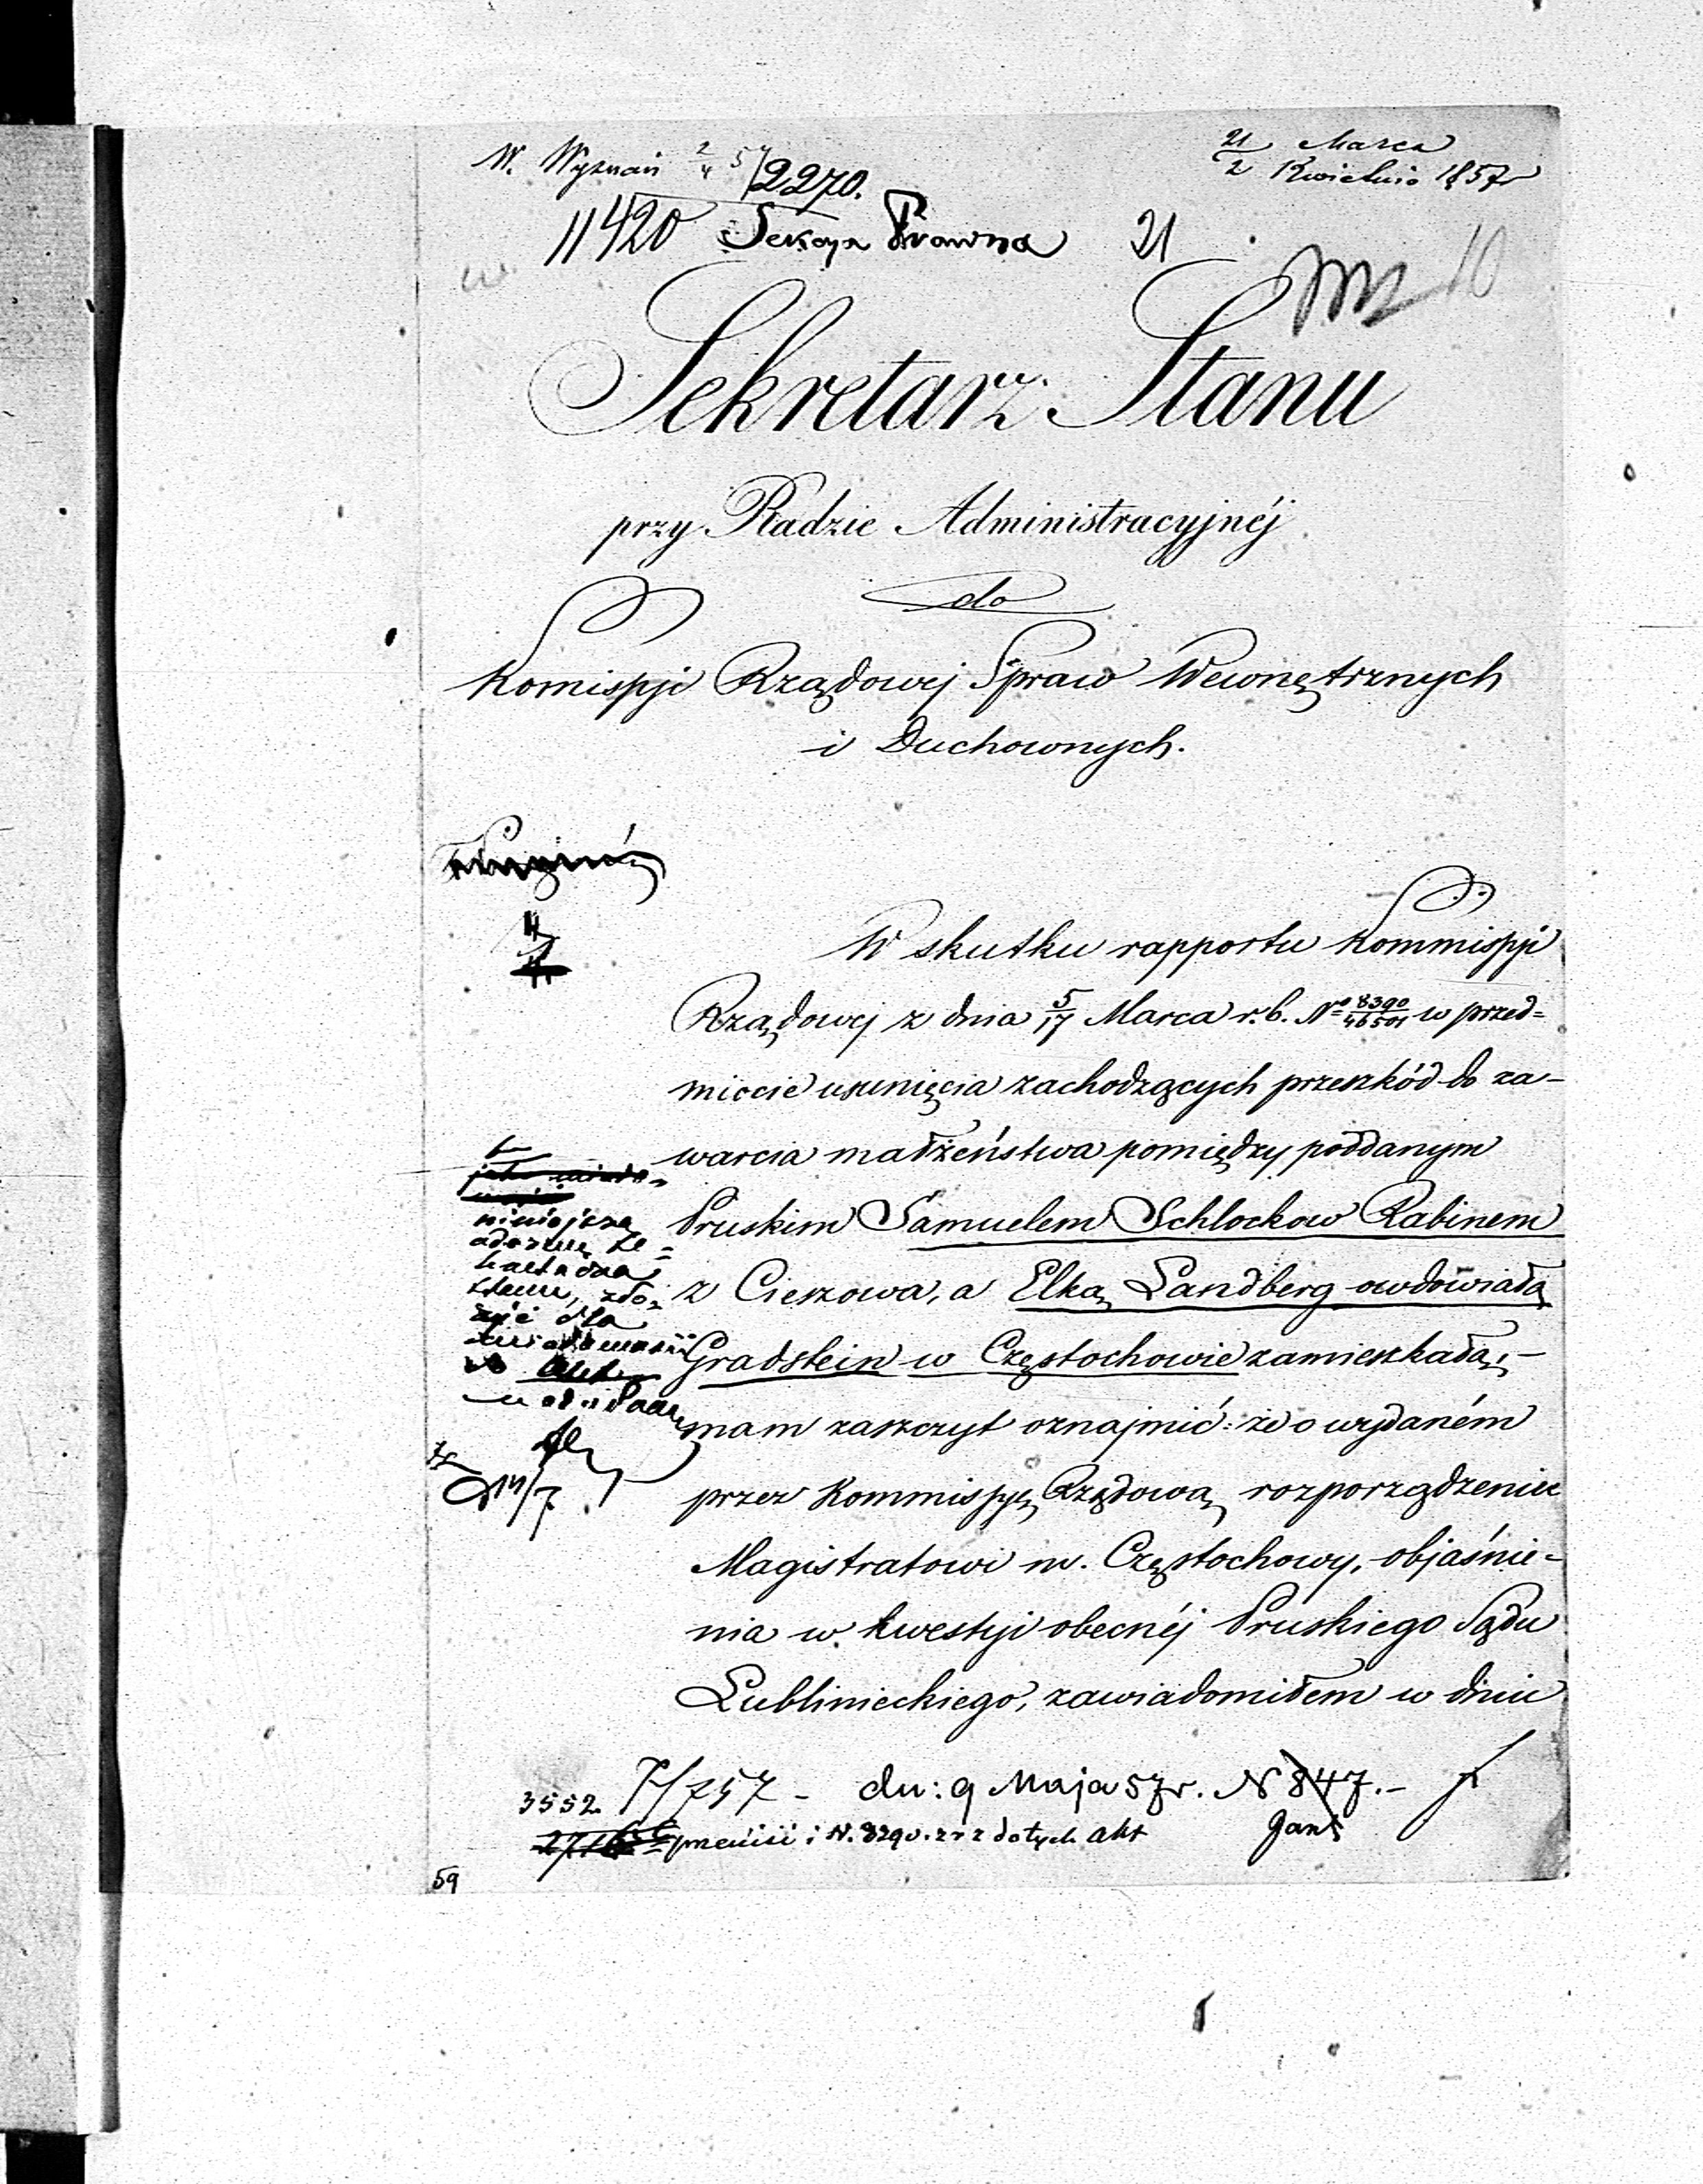 W. Wyznań 2/4 57/2270.
21/2 Marca
Kwietnia 1857 r
11420 Sekcya Prawna 21
10
Sekretarz Stanu
przy Radzie Administracyjnéj
do
Komissyi Rządowej Spraw Wewnętrznych
i Duchownych.
W skutku rapportu Kommissyi
Rządowej z dnia 5/17 Marca r.b. Nº 8390/46501 w przed=
miocie usunięcia zachodzących przeszkód do za-
warcia małżeństwa pomiędzy poddanym
Pruskim Samuelem Schlockow Rabinem
z Cieszowa, a Elką Landberg owdowiałą
Gradstein w Częstochowie zamieszkałą,-
mam zaszczyt oznajmić: że o wydaném
przez Kommissyę Rządową rozporządzeniu
Magistratowi m. Częstochowy, objaśnie-
nia w kwestyi obecnéj Pruskiego Sądu
Lublinieckiego, zawiadomiłem w dniu
niniejszą
złożyć dla
wiadomości
do akt
14/7
3552. dn: 9 Maja 57 r. N 847.-
i N. 8390. z r z dotych akt
59